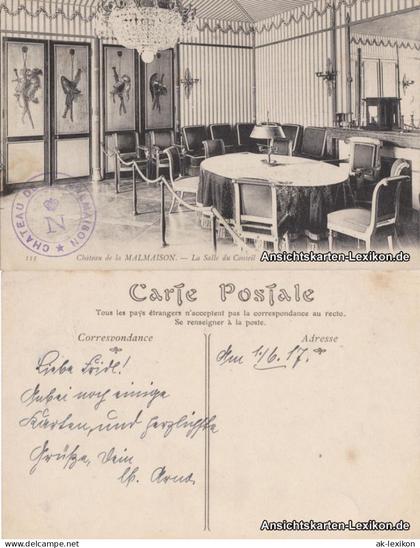 CHATEAU DE MALMAISON
N
111 Château de la MALMAISON. — La Salle du Conseil
Ansichtskarten-Lexikon.de
Carte Postale
Tous les pays étrangers n'acceptent pas la correspondance au recto.
Se renseigner à la poste.
Correspondance
Adresse
Liebe Fridl!
Am 1/6.17.
Anbei noch einige
Karten, und herzlichste
Grüße, Dein
Arno
Ansichtskarten-Lexikon.de
ak-lexikon